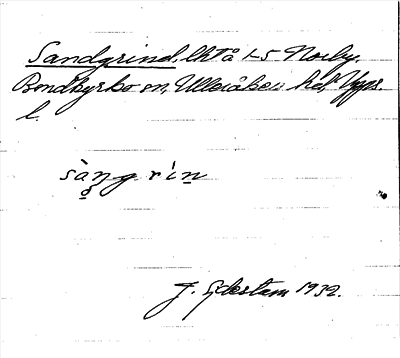 Sandgrind, lht å 1-5 Norby,
Bondkyrko sn, Ulleråkers hd, Upps.
l.
sàngrìn
J. Edestam 1932.